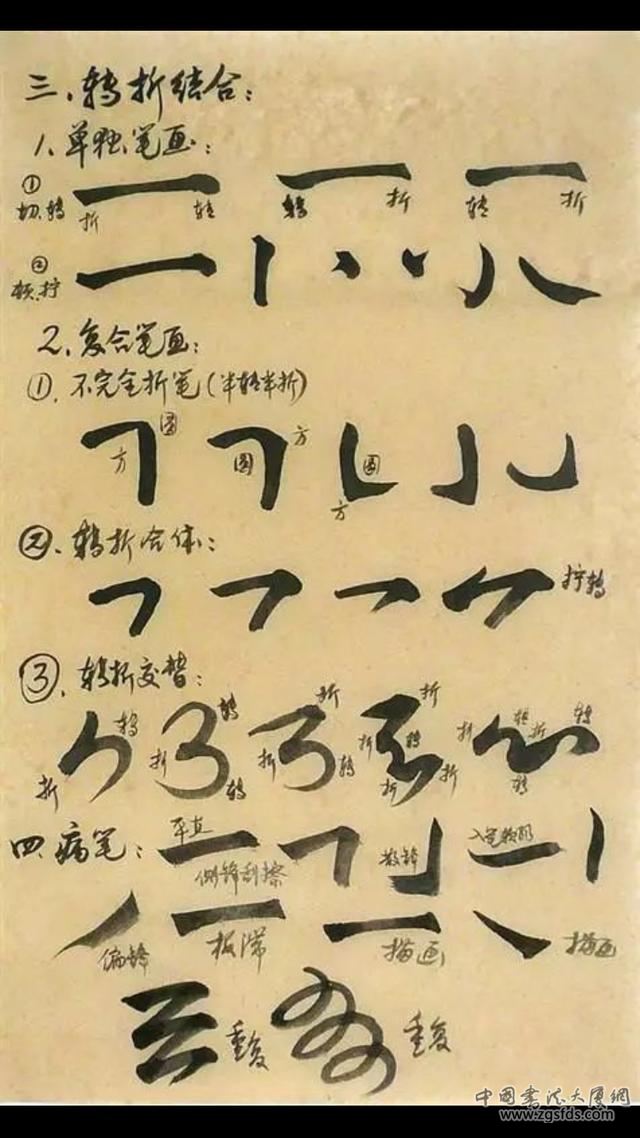 三、转折结合：
1、单独笔画：
① 切、转 折 转 转 折 转 折
② 顿、拧
2、复合笔画：
①、不完全折笔（半转半折）
方 圆 圆 方 圆 方
②、转折合体：
拧转
③、转折交替：
折 转 折 转 转 折 折 转 折 折 转 折 折 折 转 折 转 转
四、病笔： 平直 侧锋刮擦 散锋
偏锋 板滞 描画 描画
重复 重复
中国书法大厦網
www.zgsfds.com